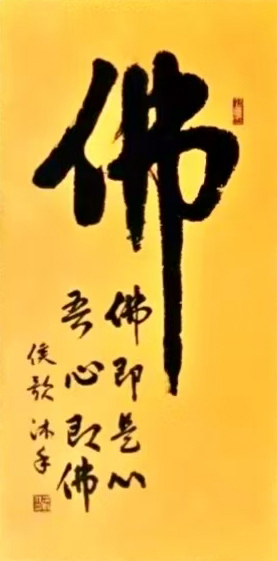 佛
佛即是心
吾心即佛
侯歌沐手